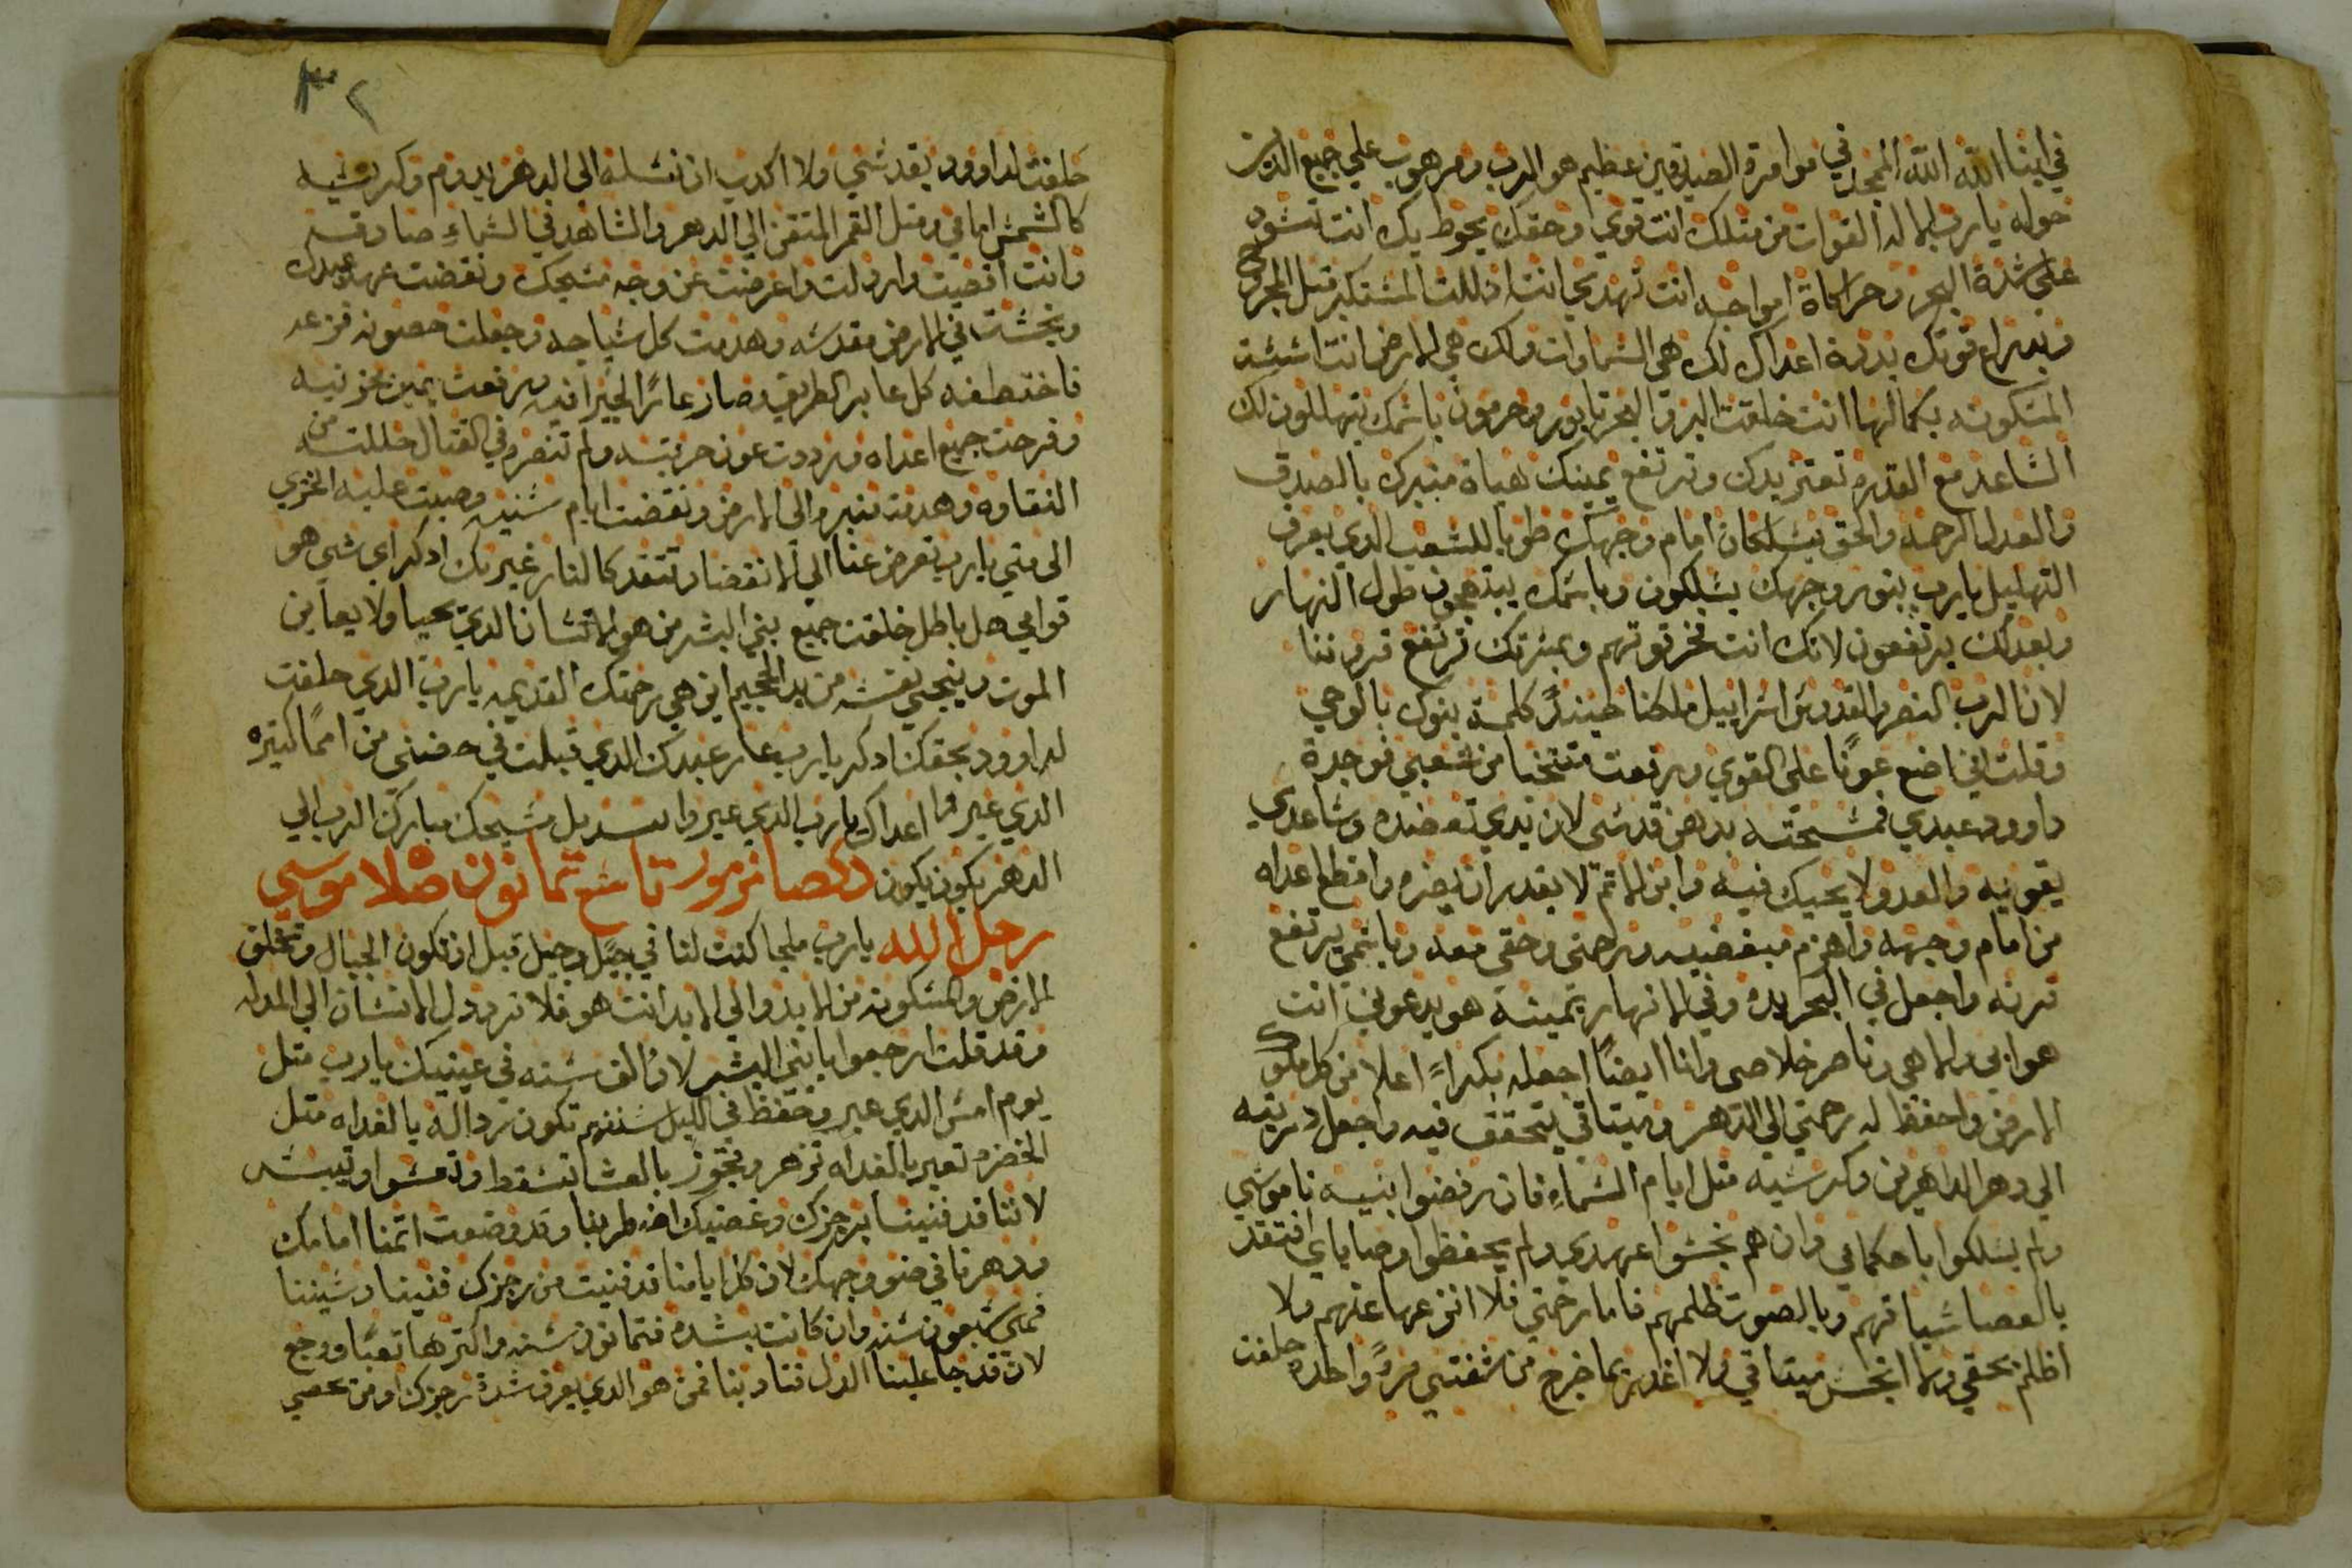 في ابنا الله الله الممجد في موامرة الصديقين عظيم هو الرب ومرهوب علي جميع الدين
حوله يا رب الاله القوات من متلك انت قوي وحقك يحوط بك انت تسود
علي شدة البحر وحراكاة امواجه انت تهدي انت اذللت المستكبر قتل المجروح
وبدراع قوتك بددة اعداك لك هي السماوات ولك هي الارض انت اسست
المسكونه بكمالها انت خلقت البر والبحر تابور وحرمون باسمك يتهللون لك
الساعد مع القدره تعتز يدك وترتفع يمينك هياة منبرك بالصدق
والعدل الرحمه والحق يسلكان امام وجهك طوبا للشعب الدي يعرف
التهليل يا رب بنور وجهك يسلكون وباسمك يبتهجون طول النهار
وبعدلك يرتفعون لانك انت فخر قوتهم وبمسرتك ترتفع قروننا
لان الرب النصر والقدوس اسراييل ملكنا حينيدٍ كلمة بنوك بالوحي
وقلت اني اضع عونًا علي القوي ورفعت منتخبا من شعبي فوجدة
داوود عبدي فمسحته بدهن قدسي لان يدي تعضده وساعدي
يقويه والعدو لا يحيك فيه وابن الاتم لا يقدر ان يضره واقطع اعداه
من امام وجهه واهزم مبغضيه ورحمتي وحقي معه وباسمي يرتفع
قرنه واجعل في البحر يده وفي الانهار يمينه هو يدعوني انت
هو ابي والاهي وناصر خلاصي وانا ايضًا اجعله بكراً اعلا من كل ملوك
الارض واحفظ له رحمتي الي الدهر وميتاقي يتحقق فيه واجعل دريته
الي دهر الداهرين وكرسيه متل ايام السماءِ فان رفضوا بنيه ناموسي
ولم يسلكوا باحكامي وان هم نجسوا عهدي ولم يحفظوا وصاياي افتقد
بالعصا سياتهم وبالصوت ظلمهم فاما رحمتي فلا انزعها عنهم ولا
اظلم بحقي ولا انجس ميتاقي ولا اغدر بما خرج من شفتي مرةً واحدة حلفت
٣٢
حلفت لداوود بقدسي ولا اكدب ان نسله الي الدهر يدوم وكرسيه
كالشمس امامي ومتل القمر المتقن الي الدهر والشاهد في السماءِ صادق
وانت اقصيت واردلت واعرضت عن وجه مسيحك ونقضت عهد عبدك
ونجست في الارض مقدسه وهدمت كل سياجه وجعلت حصونه فزعه
فاختطفه كل عابر الطريق وصار عارًا لجيرانه رفعت يمين محزنيه
وفرحت جميع اعداه ورددت عون حربته ولم تنصره في القتال حللته من
النقاوه وهدمت منبره الي الارض ونقضت ايام سنيه وصبيت عليه الخزي
الي متي يا رب تعرض عنا الي الانقضا وتتقد كالنار غيرتك ادكر اي شي هو
قوامي هل باطل خلقت جميع بني البشر من هو الانسان الدي يحيا ولا يعاين
الموت وينجي نفسه من يد الجحيم اين هي رحمتك القديمه يا رب الدي حلفت
لداوود بحقك ادكر يا رب عار عبدك الدي قبلت في حضني من اممًا كتيره
الدي عير وا اعداك يا رب الدي عيروا بسديل مسيحك مبارك الرب الي
الدهر يكون يكون دكصا مزمور تاسع تمانون صلاة موسي
رجل الله يا رب ملجا كنت لنا في جيل وجيل قبل ان تكون الجبال وتخلق
الارض والمسكونه من الابد والي الابد انت هو فلا تردد ل الانسان الي المدله
وقد قلت ارجعوا يا بني البشر لان الف سنه في عينيك يا رب متل
يوم امس الدي عبر ومحفظ في الليل سنتهم تكون ردالة بالغداه متل
الخضره تعبر بالغداه تزهر وتجوز بالعشا تسقط وتقسوا وتيبس
لاننا قد فنينا برجزك وغضبك اضطربنا وقد وضعت اتمنا امامك
ودهرنا في ضوو وجهك لان كل ايامنا قد فنيت من رجزك فنينا وسنيننا
فهي سبعون سنه وان كانت بشده فتمانون سنه واكترها تعبًا ووجع
لان قد جا علينا الدل فتادبنا فمن هو الدي يعرف شدة رجزك ومن يحصي